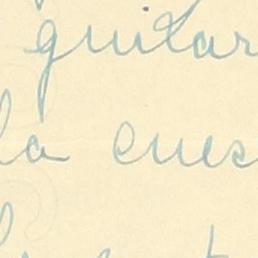 quitar
la cues